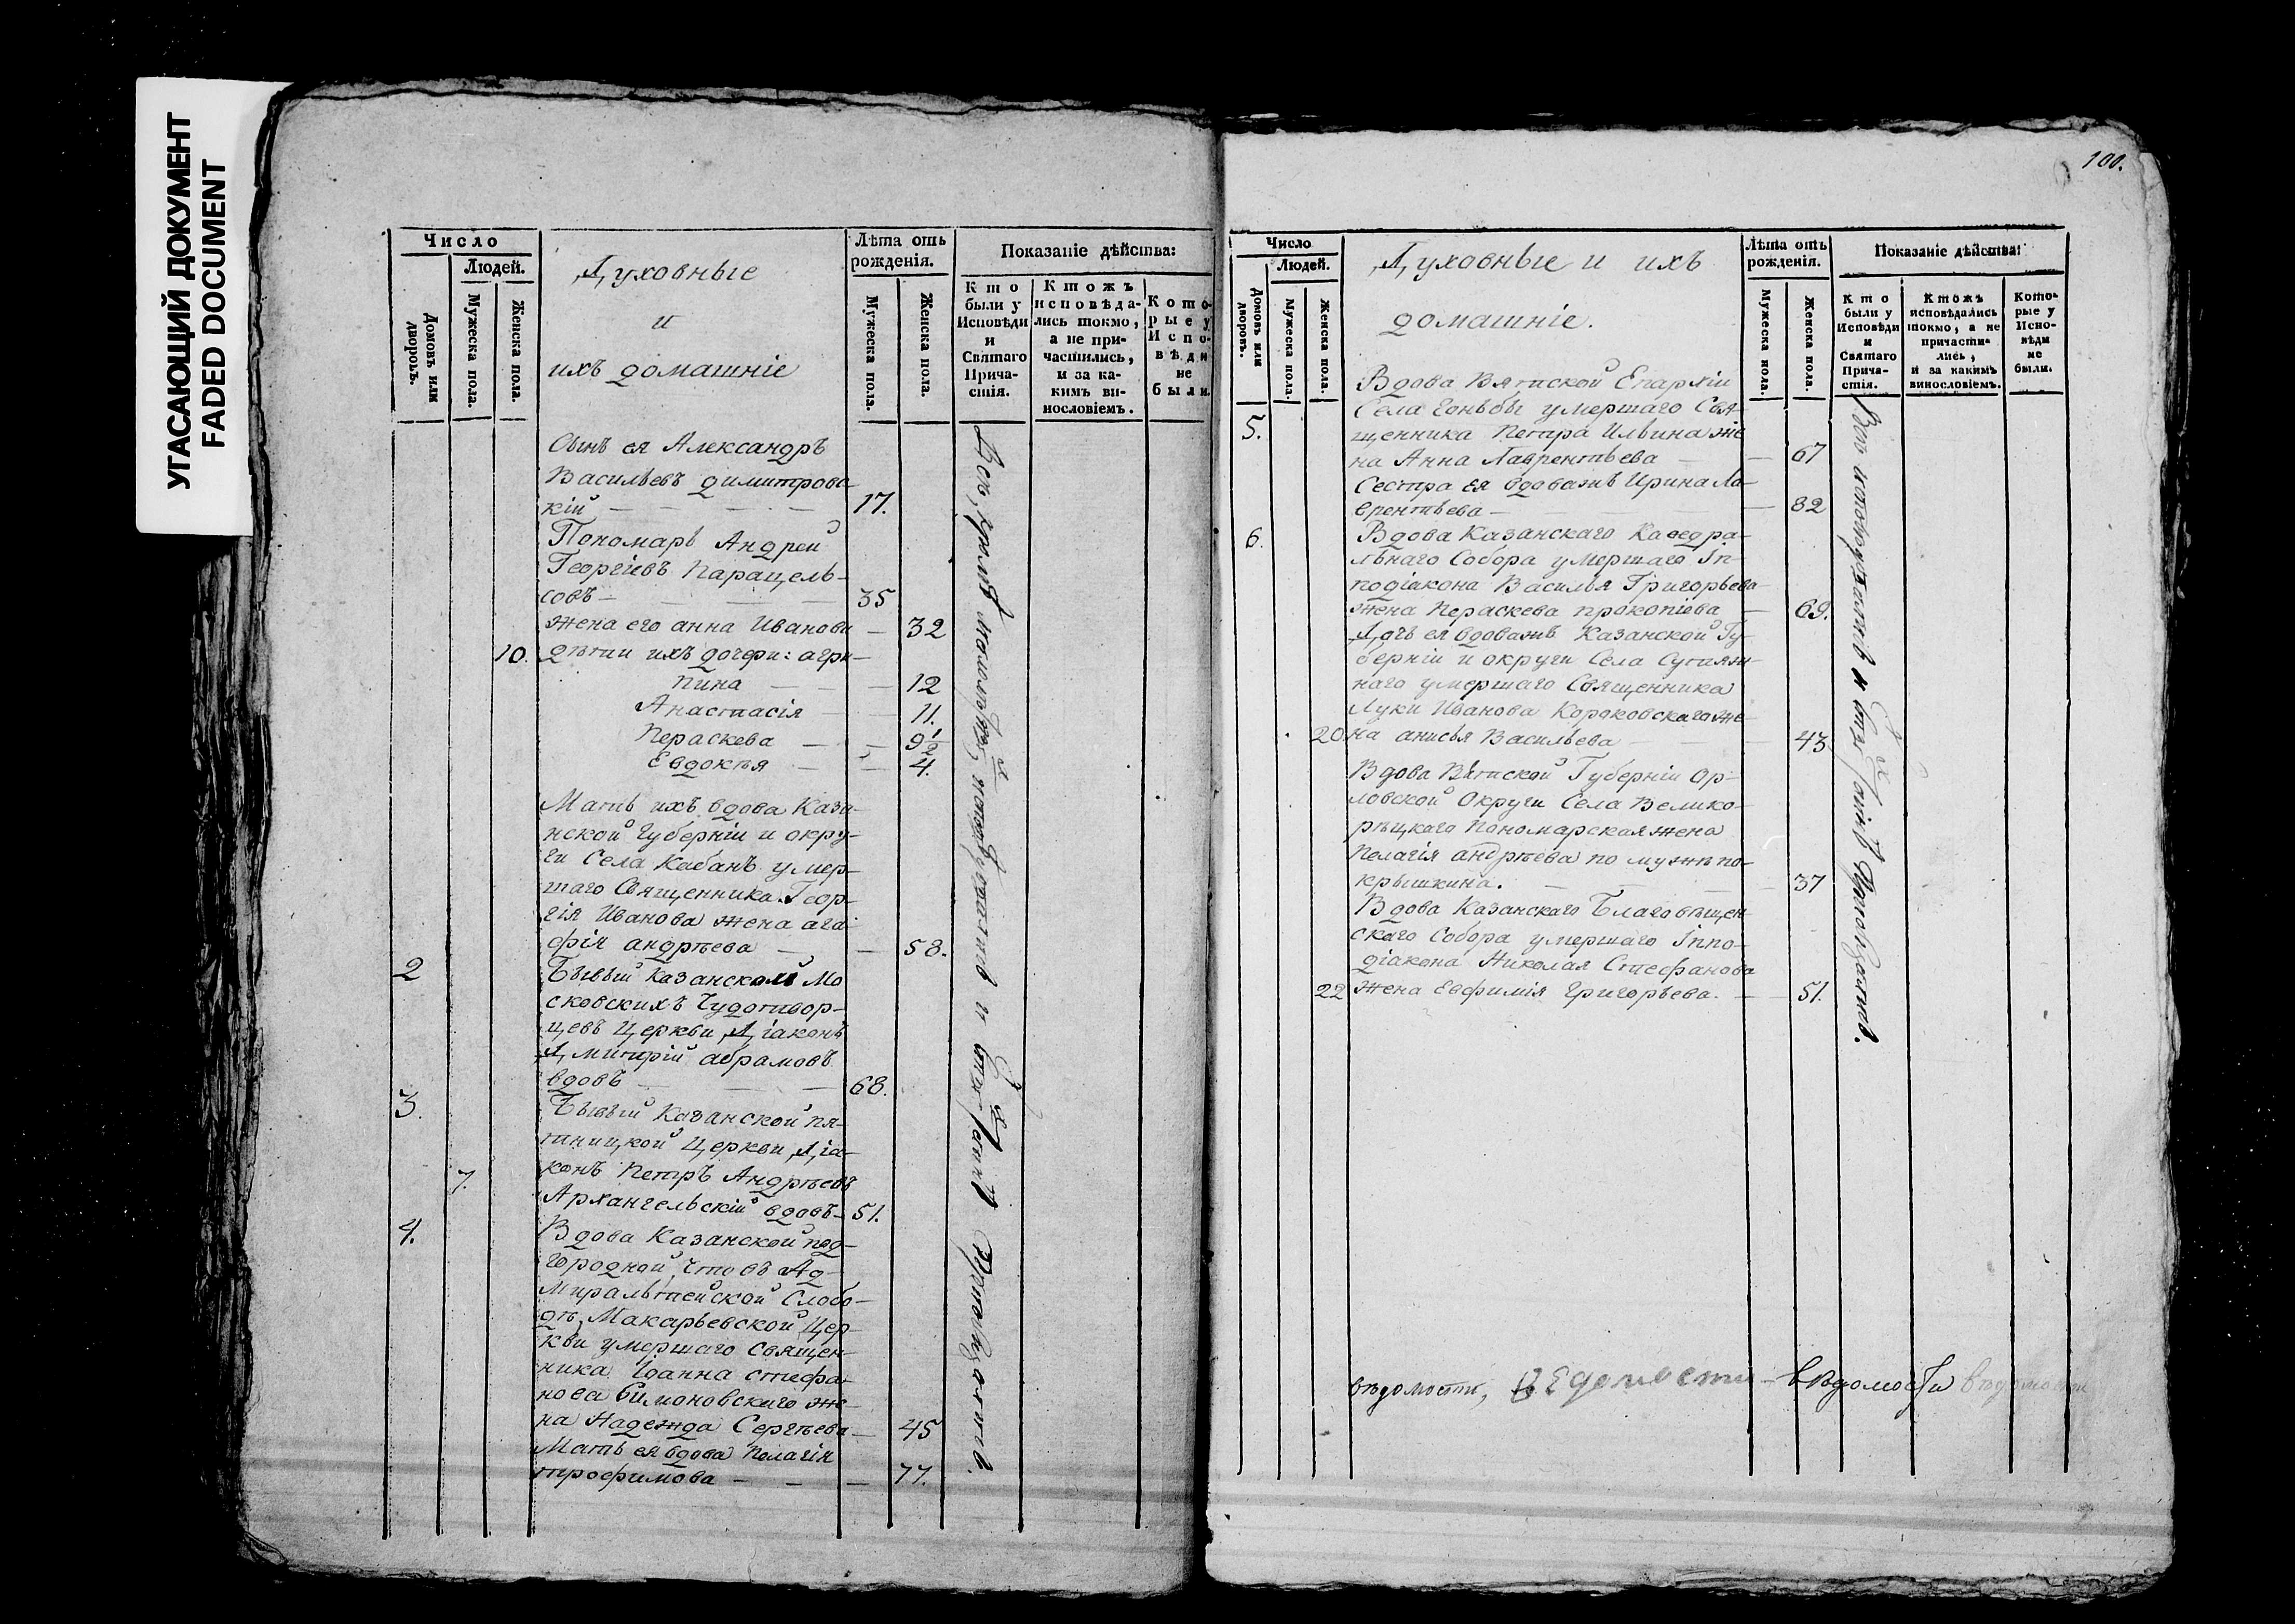 УГАСАЮЩИЙ ДОКУМЕНТ
FADED DOCUMENT
Число
Людей.
Домовъ или дворовъ.
Мужеска пола.
Женска пола.
Духовные
и
ихъ домашніе
Лѣта отъ рожденія.
Мужеска пола.
Женска пола.
Показаніе дѣйства:
Кто были у Исповѣди и Святаго Причастія.
Ктожъ исповѣдались токмо, а не причастились, и за какимъ винословіемъ.
Которые у Исповѣди не были.
Сынъ ея Александръ
Васильевъ димитровс
кій — 17.
Пономарь Андрей
Георгіевъ Парацель-
совъ — 35
жена его анна Иванова — 32
10. дѣти ихъ дочери: агри-
пина — 12
Анастасія — 11.
Пераскева — 9½
Евдокѣя — 4.
Мать ихъ вдова Каза-
нской Губерніи и окру-
ги Села Кабанъ умер-
шаго Священника Геор-
гія Иванова жена ага-
фія андрѣева — 58.
2 Бывый Казанской Мо
сковскихъ Чудотвор-
цевъ Церкви Діаконъ
Дмитрій абрамовъ
вдовъ — 68.
3. Бывый Казанской пя-
тницкой Церкви Діа-
7. конъ Петръ Андрѣевъ
Архангельскій вдовъ — 51.
4. Вдова Казанской под-
городной, что въ Ад-
миралтейской Слобо-
дѣ, Макарьевской Цер-
кви умершаго Священ-
ника Іоанна стефа-
нова Симоновскаго же-
на Надежда Сергѣева — 45
Мать ея вдова Пелагія
трофимова — 77.
100.
Число
Людей.
Домовъ или дворовъ.
Мужеска пола.
Женска пола.
Духовные и ихъ
домашніе.
Лѣта отъ рожденія.
Мужеска пола.
Женска пола.
Показаніе дѣйства:
Кто были у Исповѣди и Святаго Причастія.
Ктожъ исповѣдались токмо, а не причастились, и за какимъ винословіемъ.
Которые у Исповѣди не были.
Вдова Вятской Епархіи
Села Гоньбы умершаго Свя-
5. щенника Петра Ильина же
на Анна Лаврентьева — 67
Сестра ея вдоважъ Ирина Ла-
врентьева — 82
6. Вдова Казанскаго Каѳедра-
льнаго Собора умершаго Іп-
подіакона Василья Григорьева
жена Пераскева прокопіева — 69.
Дочь ея вдоважъ Казанской Гу-
берніи и округи Села
наго умершаго Священника
Луки Иванова Короковскаго же-
20. на анисья Васильева — 43
Вдова Вятской Губерніи Ор-
ловской Округи Села Велико-
рѣцкаго Пономарская жена
Пелагія андрѣева по мужѣ по-
крышкина. — 37
Вдова Казанскаго Благовѣщен-
скаго Собора умершаго Іппо-
діакона Николая Стефанова
22 жена Евфимія Григорьева. — 51.
вѣдомости, вѣдомости — вѣдомости вѣдомости